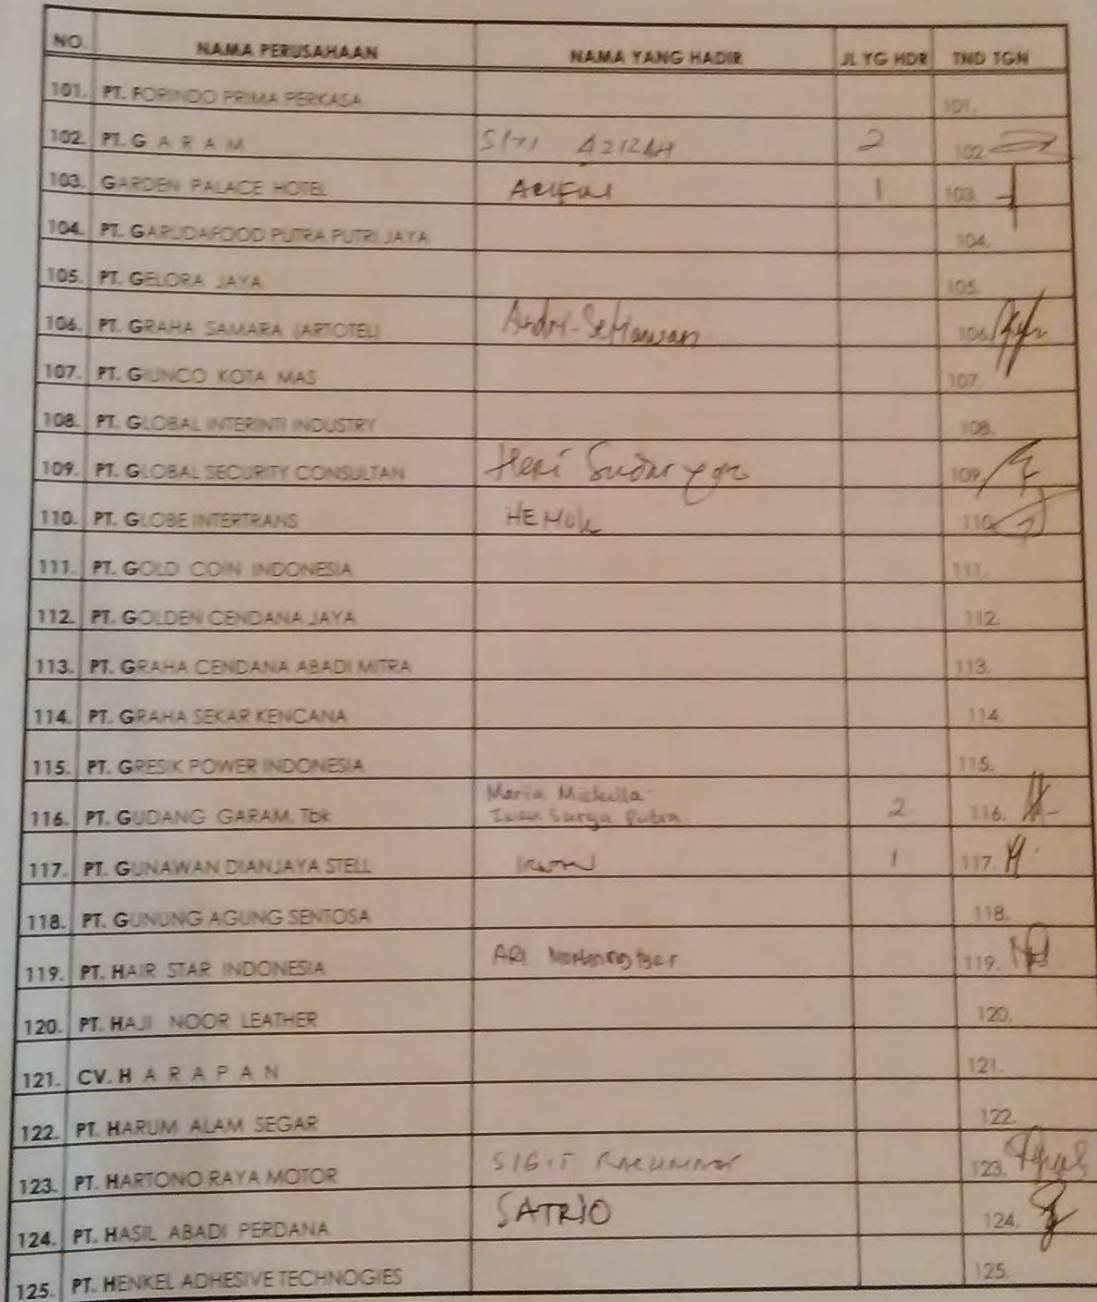 NO. NAMA PERUSAHAAN NAMA YANG HADIR JL YG HDR TND TGN
101. PT. FORINDO PRIMA PERKASA 101.
102. PT. G A R A M SITI AZIZAH 2 102.
103. GARDEN PALACE HOTEL 1 103.
104. PT. GARUDAFOOD PUTRA PUTRI JAYA 104.
105. PT. GELORA JAYA 105.
106. PT. GRAHA SAMARA (ARTOTEL) Andri Setiawan 106.
107. PT. GIUNCO KOTA MAS 107.
108. PT. GLOBAL INTERINTI INDUSTRY 108.
109. PT. GLOBAL SECURITY CONSULTAN Heri 109.
110. PT. GLOBE INTERTRANS 110.
111. PT. GOLD COIN INDONESIA 111.
112. PT. GOLDEN CENDANA JAYA 112.
113. PT. GRAHA CENDANA ABADI MITRA 113.
114. PT. GRAHA SEKAR KENCANA 114.
115. PT. GRESIK POWER INDONESIA 115.
Maria Mickella
116. PT. GUDANG GARAM. Tbk Iwan Surya Putra 2 116.
117. PT. GUNAWAN DIANJAYA STELL 1 117.
118. PT. GUNUNG AGUNG SENTOSA 118.
119. PT. HAIR STAR INDONESIA ARI 119.
120. PT. HAJI NOOR LEATHER 120.
121. CV. H A R A P A N 121.
122. PT. HARUM ALAM SEGAR 122.
123. PT. HARTONO RAYA MOTOR SIGIT 123.
124. PT. HASIL ABADI PERDANA SATRIO 124.
125. PT. HENKEL ADHESIVE TECHNOGIES 125.